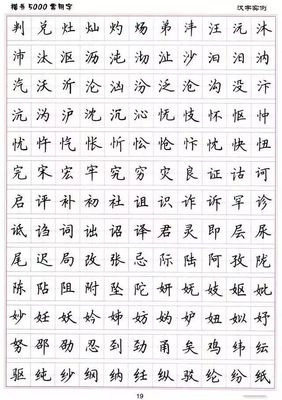 楷书5000常用字 汉字实例
判兑灶灿灼炀弟沣汪沅沐
沛汰沤沥沌沏沚沙汩汨汭
汽沃沂沦汹汾泛沧沟没汴
沆沩沪沈沉沁怃忮怀怄忡
忧忤忾忻忪怆忭忱快忸
完宋宏牢究穷灾良证诂诃
启评补初社诅识诈诉罕诊
诋诌词诎诏译君灵即层尿
尾迟局改张忌际陆阿孜陇
陈阽阻附坠陀妍妩妓妪妣
妙妊妖妗姊妨妫妒妞姒妤
努邵劭忍到劲甬矣鸡纬纭
驱纯纱纲纳纴纵驳纶纷纸
19